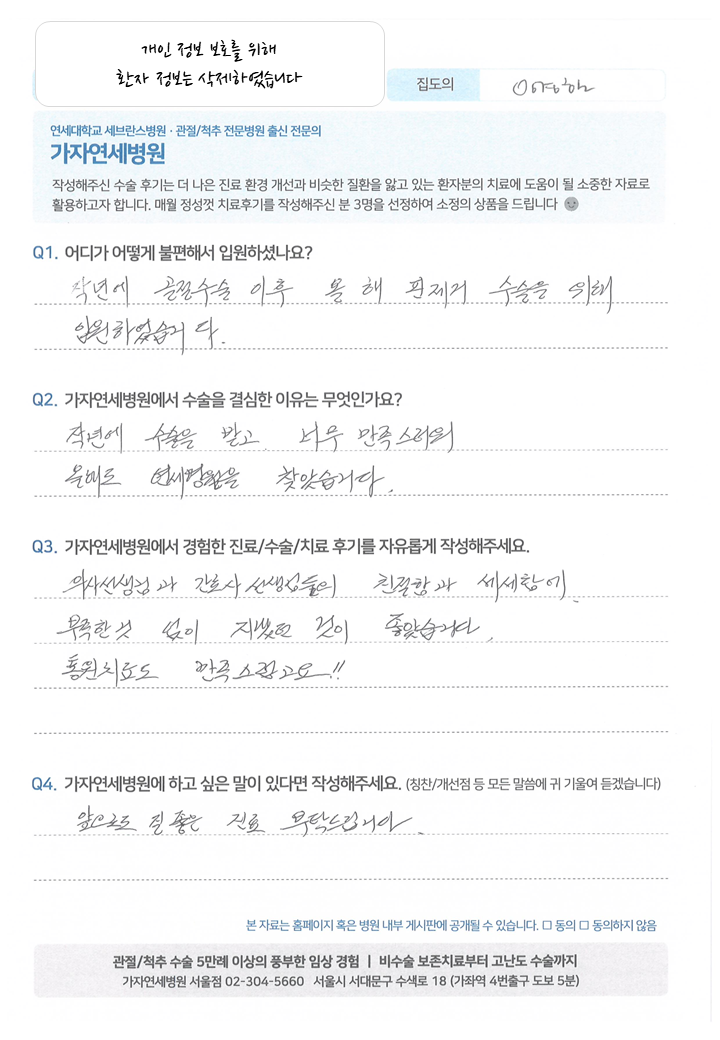 개인 정보 보호를 위해
환자 정보는 삭제하였습니다
집도의
연세대학교 세브란스병원 · 관절/척추 전문병원 출신 전문의
가자연세병원
작성해주신 수술 후기는 더 나은 진료 환경 개선과 비슷한 질환을 앓고 있는 환자분의 치료에 도움이 될 소중한 자료로
활용하고자 합니다. 매월 정성껏 치료후기를 작성해주신 분 3명을 선정하여 소정의 상품을 드립니다
Q1. 어디가 어떻게 불편해서 입원하셨나요?
작년에 골절수술 이후 올해 핀제거 수술을 위해
입원하였습니다.
Q2. 가자연세병원에서 수술을 결심한 이유는 무엇인가요?
작년에 수술을 받고 너무 만족스러워
올해도 연세병원을 찾았습니다.
Q3. 가자연세병원에서 경험한 진료/수술/치료 후기를 자유롭게 작성해주세요.
의사선생님과 간호사 선생님들의 친절함과 세세함에
부족한것 없이 지냈던 것이 좋았습니다.
통원치료도 만족스럽고요!!
Q4. 가자연세병원에 하고 싶은 말이 있다면 작성해주세요. (칭찬/개선점 등 모든 말씀에 귀 기울여 듣겠습니다)
앞으로도 질 좋은 진료 부탁드립니다.
본 자료는 홈페이지 혹은 병원 내부 게시판에 공개될 수 있습니다. □ 동의 □ 동의하지 않음
관절/척추 수술 5만례 이상의 풍부한 임상 경험 | 비수술 보존치료부터 고난도 수술까지
가자연세병원 서울점 02-304-5660 서울시 서대문구 수색로 18 (가좌역 4번출구 도보 5분)